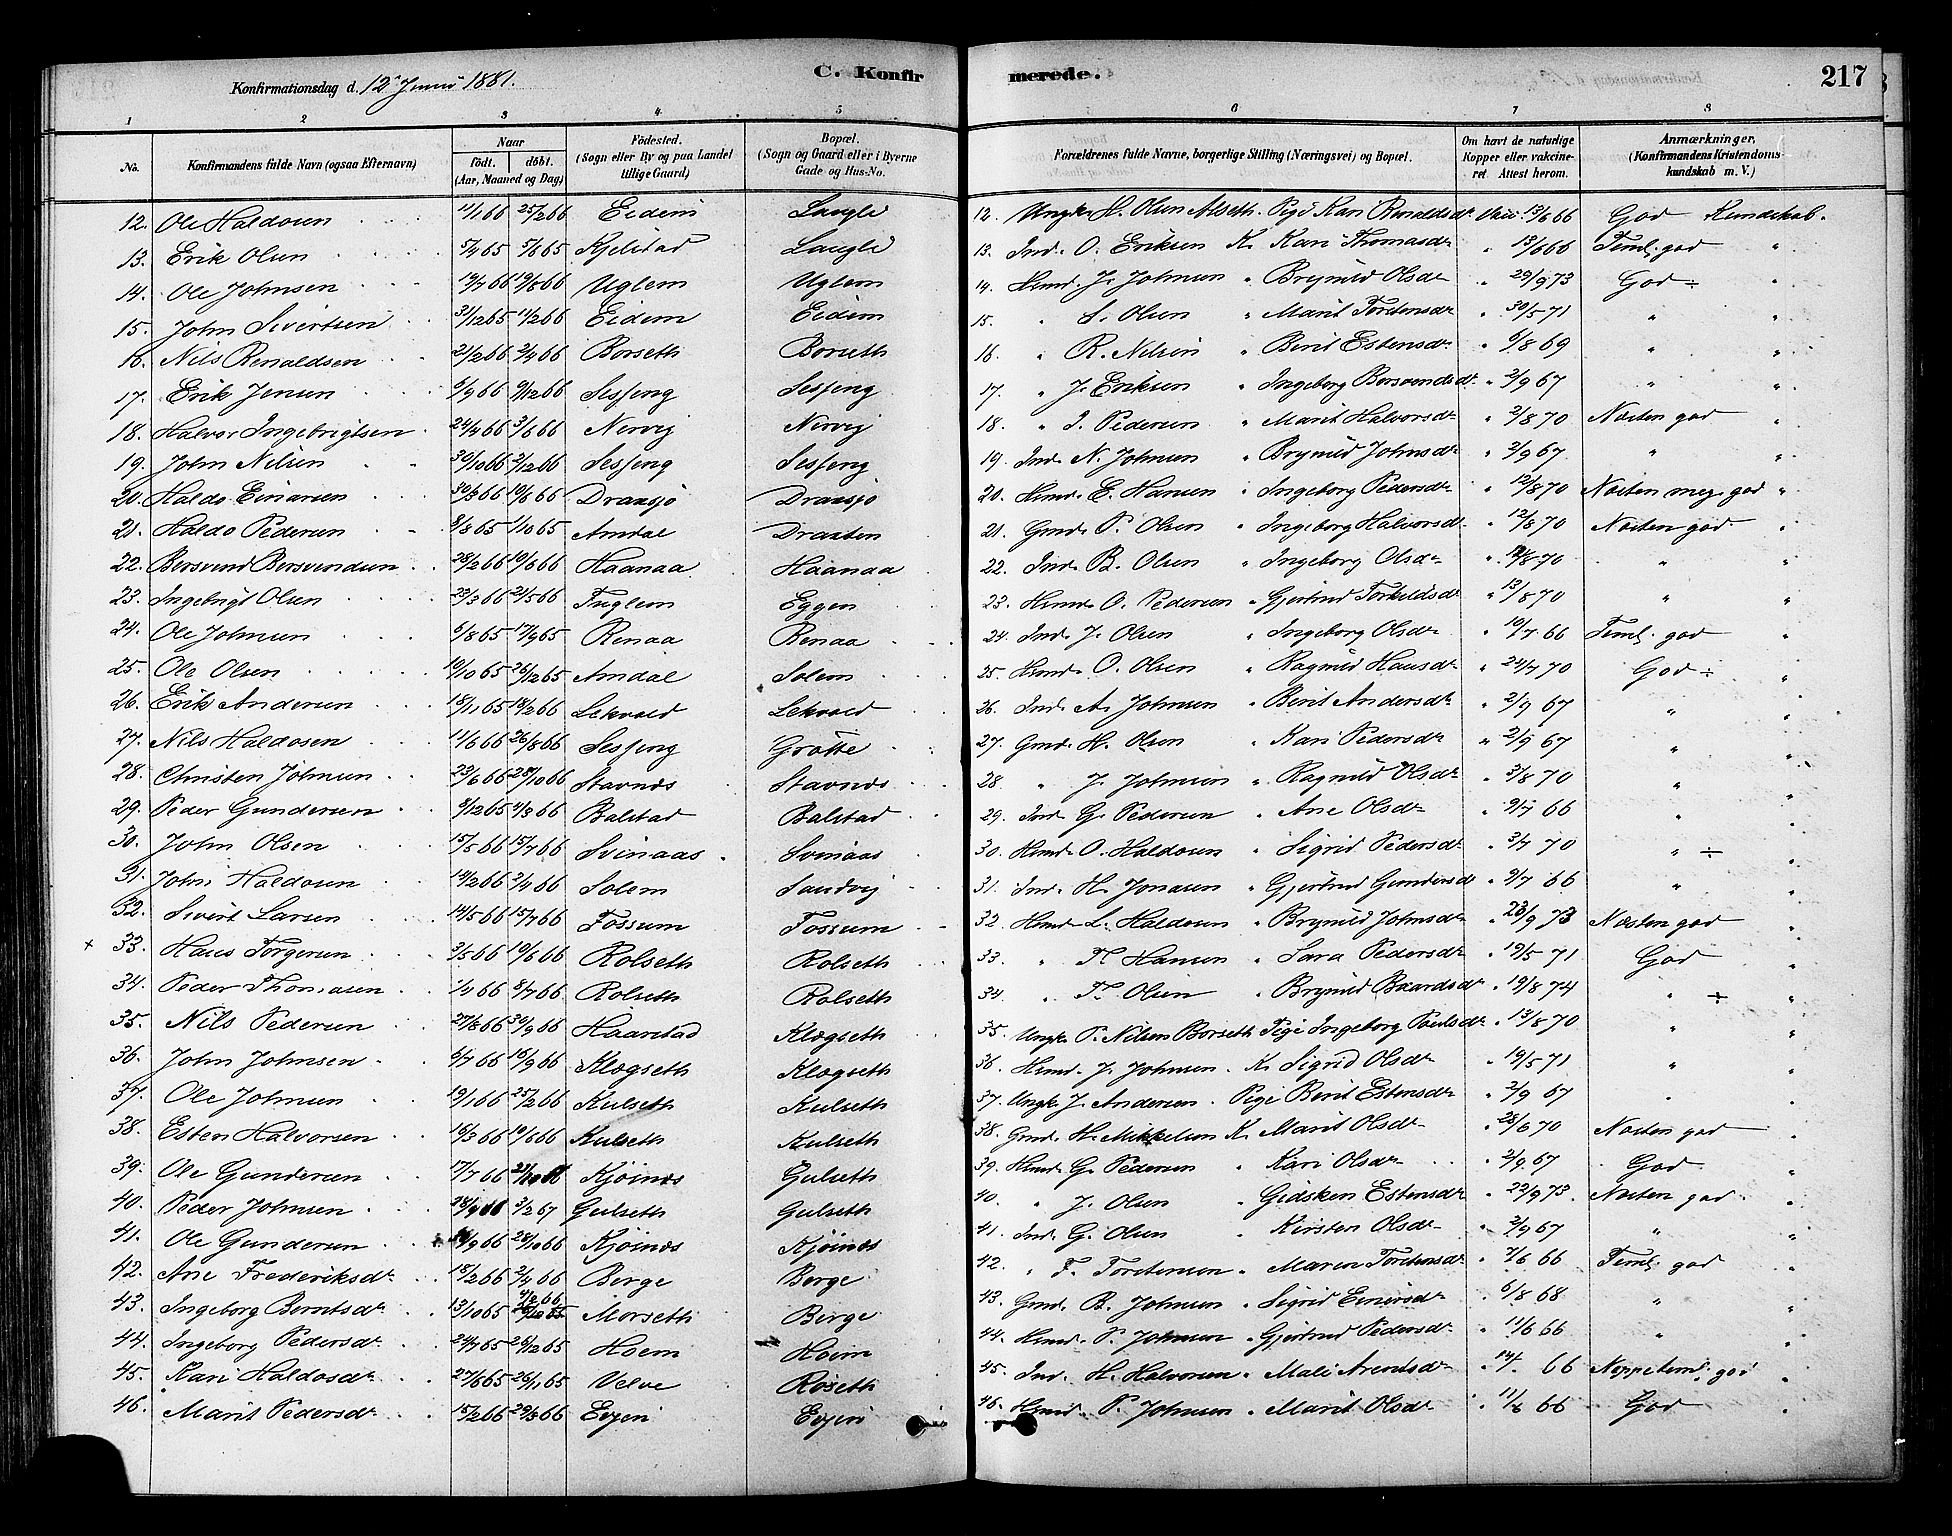 C. Konfirmerede. 217
Konfirmationsdag d. 12te Juni 1881.
1 2 3 4 5 6 7 8
No. Konfirmandens fulde Navn (ogsaa Efternavn) Naar født. døbt. (Aar, Maaned og Dag) Fødested. (Sogn eller By og paa Landet tillige Gaard) Bopæl. (Sogn og Gaard eller i Byerne Gade og Hus-No. Forældrenes fulde Navne, borgerlige Stilling (Næringsvei) og Bopæl. Om havt de naturlige Kopper eller vakcineret Attest herom. Anmærkninger, (Konfirmandens Kristendomskundskab m. V.)
12. Ole Haldosen 11/1 66 25/2 66 Eidem Langli 12. Ungk. H. Olsen Alseth Pige Kari Renaldsdr Vac. 13/6 66 God Kundskab.
13. Erik Olsen 5/4 65 5/6 65 Kjelstad Langli 13. Ind. O. Eriksen K. Kari Thomasdr " 13/6 66 Teml. god "
14. Ole Johnsen 19/7 66 19/8 66 Uglem Uglem 14. Hmd. J. Johnsen " Brynild Olsdr " 29/9 73 God ÷ "
15. John Sivertsen 31/12 65 11/2 66 Eidem Eidem 15. " S. Olsen " Marit Torstensdr " 30/5 71 " "
16. Nils Renaldsen 21/2 66 2/4 66 Borseth Borseth 16. " R. Nilsen " Berit Estensdr " 6/8 69 " "
17. Erik Jensen 6/9 66 9/12 66 Sesseng Sesseng 17. " J. Eriksen " Ingeborg Borsvendsdr " 2/9 67 " "
18. Halvor Ingebrigtsen 24/4 66 3/6 66 Nervig Nervig 18. " I. Pedersen " Marit Halvorsdr " 2/8 70 Næsten god "
19. John Nilsen 30/10 66 2/12 66 Sesseng Sesseng 19. Ind. N. Johnsen " Brynild Johnsdr " 2/9 67 " "
20. Haldo Einarsen 19/8 66 Draxsjø Draxsjø 20. Hmd. E. Hansen " Ingeborg Pedersdr " 12/8 70 Næsten meg. god "
21. Haldo Pedersen 8/8 65 1/10 65 Amdal Draxten 21. Gmd. P. Olsen " Ingeborg Halvorsdr " 12/8 70 Næsten god "
22. Bersvend Bersvendsen 28/2 66 19/6 66 Haanaa Haanaa 22. Ind. B. Olsen " Ingeborg Olsdr " " "
23. Ingebrigt Olsen 23/3 66 21/5 66 Fuglem Eggen 23. Hmd. O. Pedersen " Gjertrud Torkildsdr " 13/8 70 " "
24. Ole Johnsen 6/8 65 17/9 65 Renaa Renaa 24. Ind. J. Olsen " Ingeborg Olsdr " 10/7 66 Teml. god "
25. Ole Olsen 19/10 65 26/12 65 Amdal Solem 25. Hmd. O. Olsen " Ragnild Hansdr " 24/7 70 God ÷ "
26. Erik Andersen 18/11 65 18/2 66 Lekvold Lekvold 26. Ind. A. Johnsen " Berit Andersdr " 2/9 67 " "
27. Nils Haldosen 11/6 66 26/8 66 Sesseng Grøtte 27. Gmd. H. Olsen " Kari Pedersdr " 2/9 67 " "
28. Christen Johnsen 23/6 66 28/10 66 Stavnes Stavnes 28 " J. Johnsen " Ragnild Olsdr " 3/8 70 " "
29. Peder Gundersen 9/12 65 4/3 66 Balstad Balstad 29. Ind. G. Pedersen " Ane Olsdr " 9/7 66 " "
30. John Olsen 15/5 66 15/7 66 Svinaas Svinaas 30. Hmd. O. Haldosen " Sigrid Pedersdr " 3/7 70 " ÷ "
31. John Haldosen 14/2 66 2/4 66 Solem Sandvig 31. Ind. H. Jonasen " Gjertrud Gundersdr " 9/7 66 " "
32. Sivert Larsen 14/5 66 15/7 66 Fossum Fossum 32. Hmd. L. Haldosen " Brynild Johnsdr " 23/9 73 Næsten god "
× 33. Hans Torgersen 3/5 66 19/8 66 Rolseth Rolseth 33. " T. Hansen " Sara Pedersdr " 19/5 71 God "
34. Peder Thomasen 1/4 66 8/7 66 Rolseth Rolseth 34. " T. Olsen " Brynild Baardsdr " 19/8 74 " ÷ "
35. Nils Pedersen 27/8 66 30/9 66 Haarstad Klegseth 35. Ungk. P. Nilsen Borseth Pige Ingeborg Paulsdr " 13/8 70 " "
36. John Johnsen 6/7 66 16/9 66 Klegseth Klegseth 36. Hmd. J. Johnsen K. Sigrid Olsdr " 19/5 71 " "
37. Ole Johnsen 19/1 66 25/2 66 Kulseth Kulseth 37. Ungk. J. Andersen Pige Berit Estensdr " 2/9 67 " "
38. Esten Halvorsen 16/3 66 19/6 66 Kulseth Kulseth 38. Gmd. H. Mikkelsen K. Marit Olsdr " 28/6 70 Næsten god "
39. Ole Gundersen 17/7 66 Kjøines Gulseth 39. Hmd. G. Pedersen " Kari Olsdr " 2/9 67 God "
40. Peder Johnsen 3/2 67 Gulseth Gulseth 40. " J. Olsen " Gidsken Estensdr " 22/9 73. Næsten god "
41. Ole Gundersen 28/10 66 Kjøines Kjøines 41. Ind. G. Olsen " Kirsten Olsdr " 2/9 67 " "
42. Ane Frederiksdr 18/2 66 2/4 66 Berge Berge 42. " F. Torstensen " Maren Torstensdr " 7/6 66 Teml. god "
43. Ingeborg Berntsdr 13/10 65 4/2 66 Morseth Berge 43. Gmd. B. Johnsen " Sigrid Einersdr " 6/8 68 " "
44. Ingeborg Pedersdr 24/7 65 26/12 65 Hoem Hoem 44. Hmd. P. Johnsen " Gjertrud Pedersdr " 11/6 66 " "
45. Kari Haldosdr 27/6 65 26/11 65 Velve Røseth 45. Ind. H. Halvorsen " Mali Arentsdr " 14/ 66 Neppe teml. god "
46. Marit Pedersdr 15/2 66 29/3 66 Evjen Evjen 46. Hmd. P. Johnsen " Marit Olsdr " 11/6 66 God "